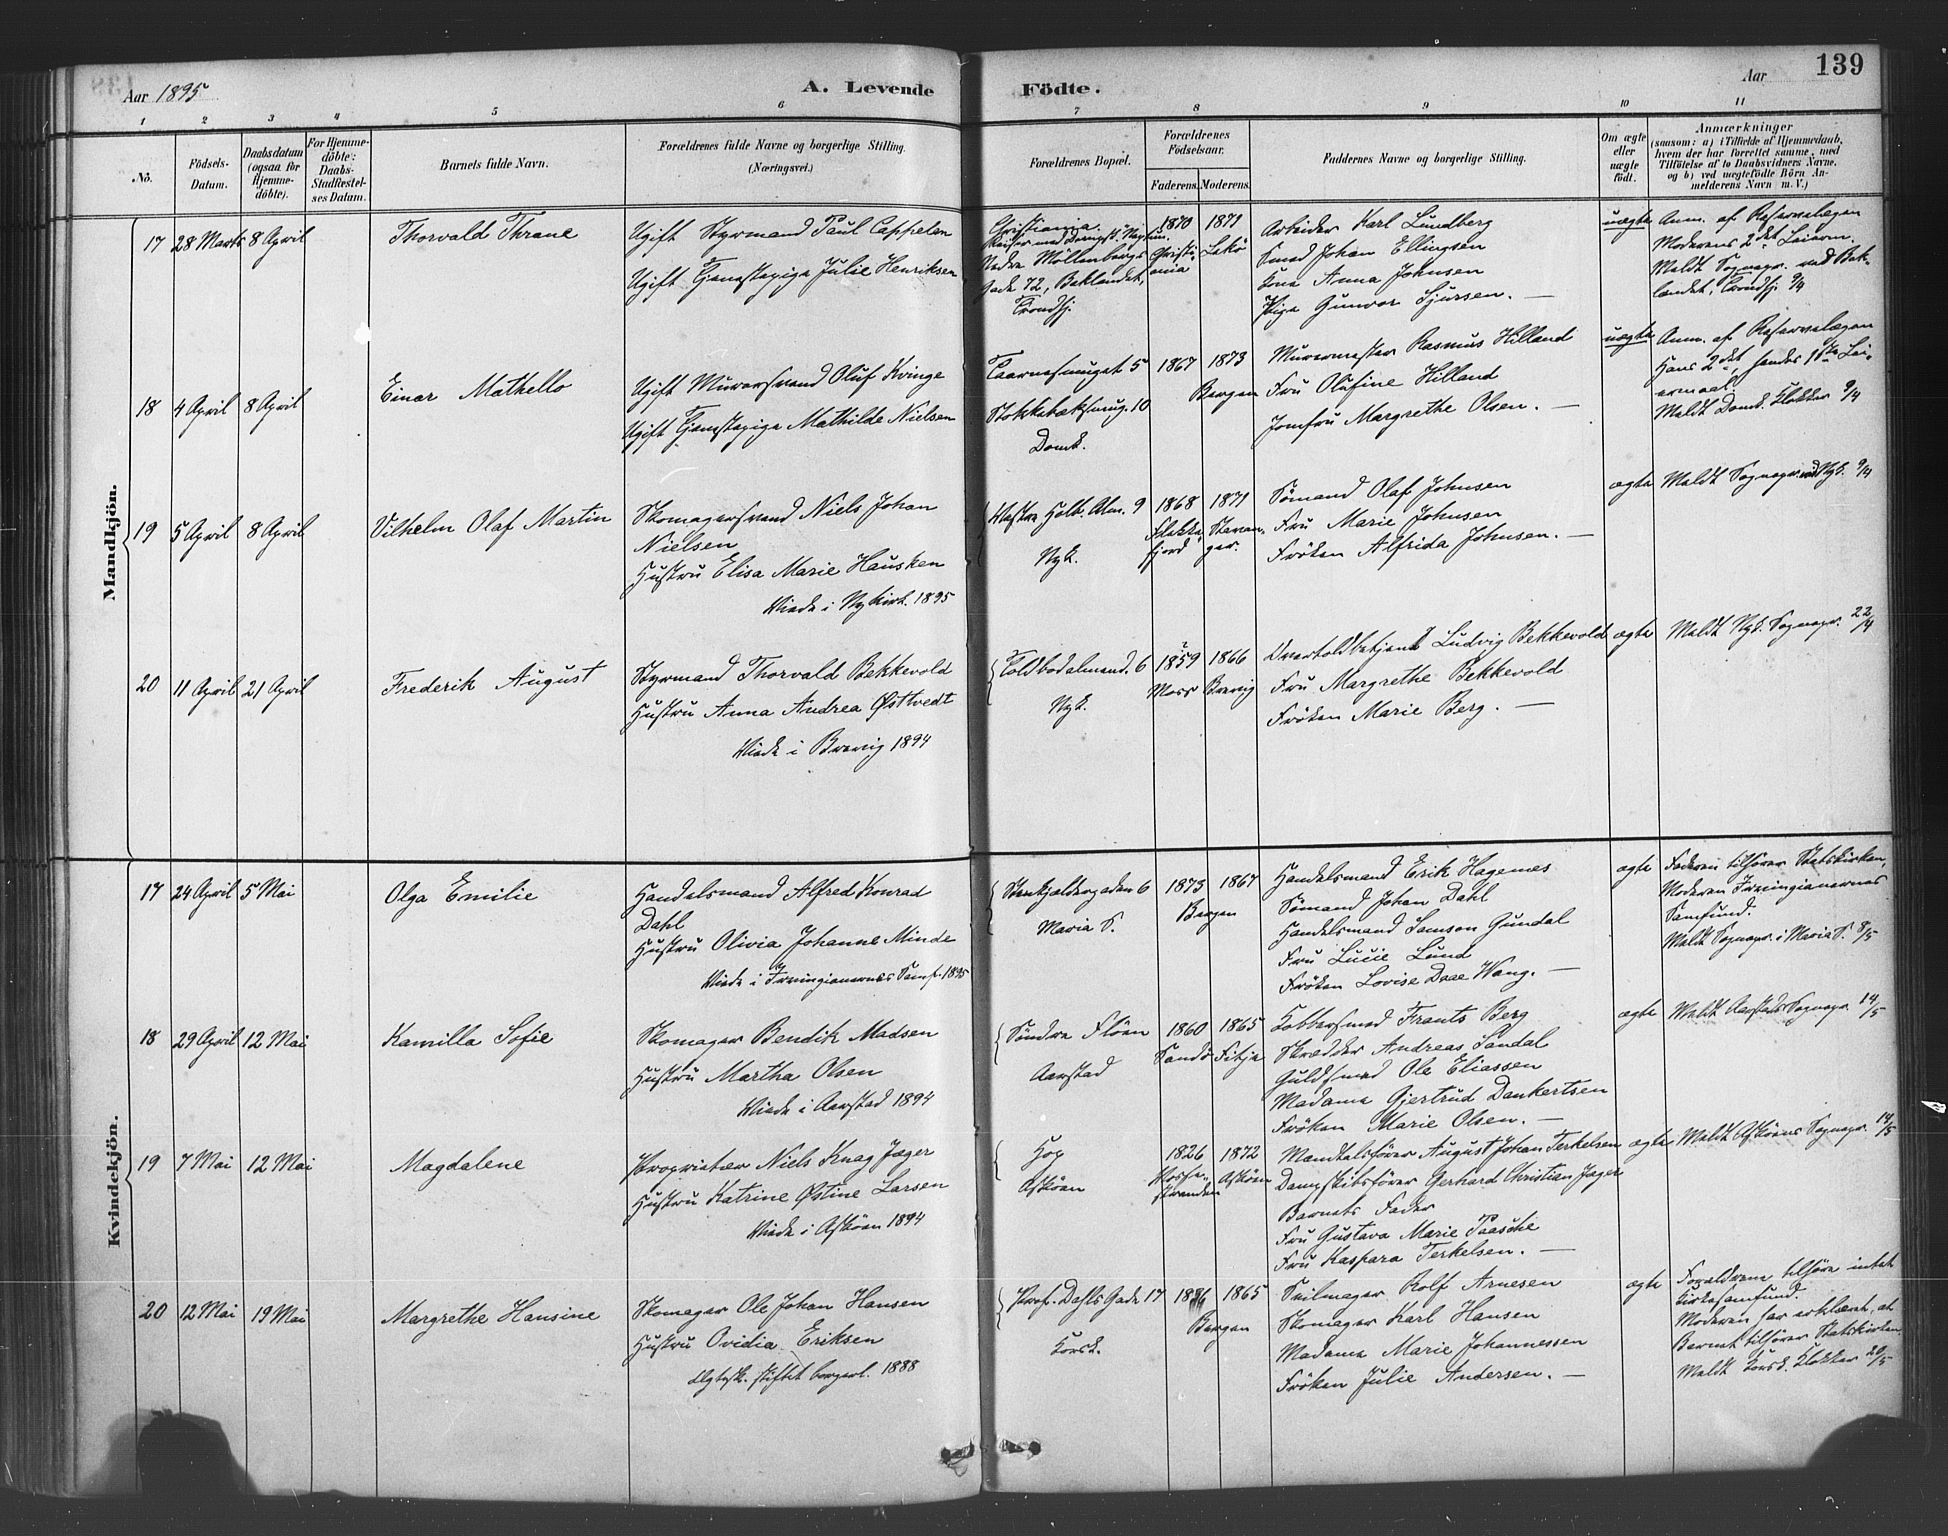 Aar 1895
A. Levende Födte.
Aar
139
1 2 3 4 5 6 7 8 9 10 11
No.
Födsels-Datum.
Daabsdatum (ogsaa for Hjemme-döbte).
For Hjemme-döbte: Daabs-Stadfæstel-ses Datum.
Barnets fulde Navn.
Forældrenes fulde Navne og borgerlige Stilling.
(Næringsvei.)
Forældrenes Bopæl.
Forældrenes Födselsaar.
Faderens. Moderens.
Faddernes Navne og borgerlige Stilling.
Om ægte eller uægte födt.
Anmærkninger
(saasom: a) i Tilfælde af Hjemmedaab,
hvem der har forrettet samme, med
Tilföielse af to Daabsvidners Navne,
og b) ved uægtefödte Börn An-
melderens Navn m. V.)
Mandkjön.
17 28 Marts 8 April Thorvald Thrane
Ugift Styrmand Paul Cappelen
Ugift Tjenestepige Julie Henriksen
Christiania.
Nedre Möllenbergs
Gade 72, Baklandet,
Trondhj.
1870 Christiania
1871 Lekö
Arbeider Karl Lundberg
Smed Johan Ellingsen
Kone Anna Johnsen
Pige Gunvor Sjursen. —
uægte
Anm. af Reservelægen
Moderens 2det Leierm.
Meldt Sognepr. ved Bak-
landet, Trondhj. 9/4
18 4 April 8 April Einar Mathello
Ugift Murersvend Oluf Kvinge
Ugift Tjenestepige Mathilde Nielsen
Taarnesmuget 5
Stokkebæksmug. 10
Domk.
1867 1873
Bergen
Murermester Rasmus Hilland
Fru Olufine Hilland
Jomfru Margrethe Olsen. —
uægte
Anm. af Reservelægen
Hans 2det, hendes 1ste Lei-
ermaal.
Meldt Domk. Klokker 9/4
19 5 April 8 April Vilhelm Olaf Martin
Skomagersvend Niels Johan
Nielsen
Hustru Elisa Marie Hausken
Viede i Nykirk. 1895
Vestre Holb. Alm. 9
Nyk.
1868 Flekke-fjord
1871 Stavan-ger.
Sömand Olaf Johnsen
Fru Marie Johnsen
Fröken Alfrida Johnsen. —
ægte
Meldt Sognepr. ved Nyk. 9/4
20 11 April 21 April Frederik August
Styrmand Thorvald Bekkevold
Hustru Anna Andrea Østtvedt
Viede i Brevig 1894
Toldbodalmend. 6
Nyk.
1859 Moss
1866 Brevig
Overtoldbetjent Ludvig Bekkevold
Fru Margrethe Bekkevold
Fröken Marie Berg. —
ægte
Meldt Nyk. Sognepr. 22/4
Kvindekjön.
17 24 April 5 Mai Olga Emilie
Handelsmand Alfred Konrad
Dahl
Hustru Olivia Johanne Minde
Viede i Irvingianernes Samf. 1895
Stenkjeldergaden 6
Maria S.
1873 1867
Bergen
Handelsmand Erik Hagenes
Sömand Johan Dahl
Handelsmand Samson Gundal
Fru Lucie Lund
Fröken Lovise Daae Wang. —
ægte
Faderen tilhörer Statskirken,
Moderen Irvingianernes
Samfund.
Meldt Sognepr. i Maria S. 8/5
18 29 April 12 Mai Kamilla Sofie
Skomager Bendik Madsen
Hustru Martha Olsen
Viede i Aarstad 1894
Söndre Flöen
Aarstad
1860 Sandö
1865 Fitje
Kobbersmed Frants Berg
Skrædder Andreas Sandal
Guldsmed Ole Eliassen
Madame Gjertrud Dankertsen
Fröken Marie Olsen. —
ægte
Meldt Aarstads Sognepr. 14/5
19 7 Mai 12 Mai Magdalene
Proprietær Niels Knag Jæger
Hustru Katrine Østine Larsen
Viede i Asköen 1894
Hop
Asköen
1826
1872 Asköen
Mandtalsförer August Johan Terkelsen
Dampskibsförer Gerhard Christian Jæger
Barnets Fader
Fru Gustava Marie Paasche
Fru Kaspara Terkelsen. —
ægte
Meldt Asköens Sognepr. 14/5
20 12 Mai 19 Mai Margrethe Hansine
Skomager Ole Johan Hansen
Hustru Ovidia Eriksen
Ægtesk. stiftet borgerl. 1888
Prof. Dahls Gade 17
Korsk.
1865
Bergen
Seilmager Rolf Arnesen
Skomager Karl Hansen
Madame Marie Johannessen
Fröken Julie Andersen. —
ægte
Forældrene tilhöre intet
Kirkesamfund.
Moderen har erklæret, at
Barnet tilhörer Statskirken
Meldt Korsk. Klokker 20/5